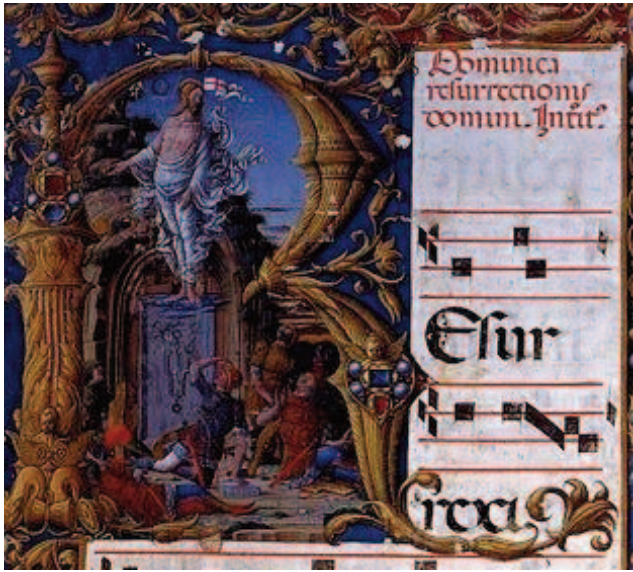 Dominica
resurrectionis
domini.
REsur
rexi